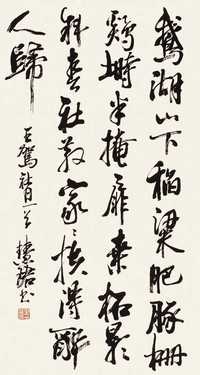 鵝湖山下稻粱肥豚柵
鷄塒半掩扉桑柘影
斜春社散家〻扶得醉
人歸
王駕社日一首 书